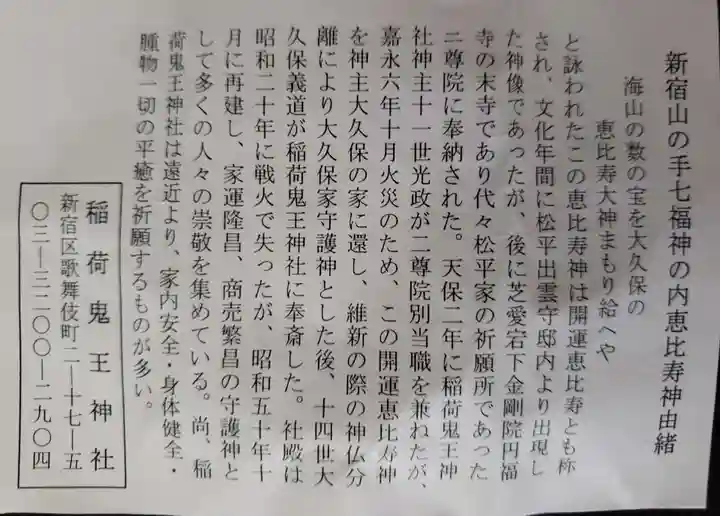 新宿山の手七福神の内恵比寿神由緒
海山の数の宝を大久保の
恵比寿大神まもり給へや
と詠われたこの恵比寿神は開運恵比寿とも称
され、文化年間に松平出雲守邸内より出現し
た神像であったが、後に芝愛岩下金剛院円福
寺の末寺であり代々松平家の祈願所であった
ニ尊院に奉納された。天保二年に稲荷鬼王神
社神主十一世光政が二尊院別当職を兼ねたが、
嘉永六年十月火災のため、この開運恵比寿神
を神主大久保の家に還し、維新の際の神仏分
離により大久保家守護神とした後、十四世大
久保義道が稲荷鬼王神社に奉斎した。社殿は
昭和二十年に戦火で失ったが、昭和五十年十
月に再建し、家運隆昌、商売繁昌の守護神と
して多くの人々の崇敬を集めている。尚、稲
荷鬼王神社は遠近より、家内安全・身体健全・
腫物一切の平癒を祈願するものが多い。
稲荷鬼王神社
新宿区歌舞伎町二ー十七ー五
〇三ー三二〇〇ー二九〇四